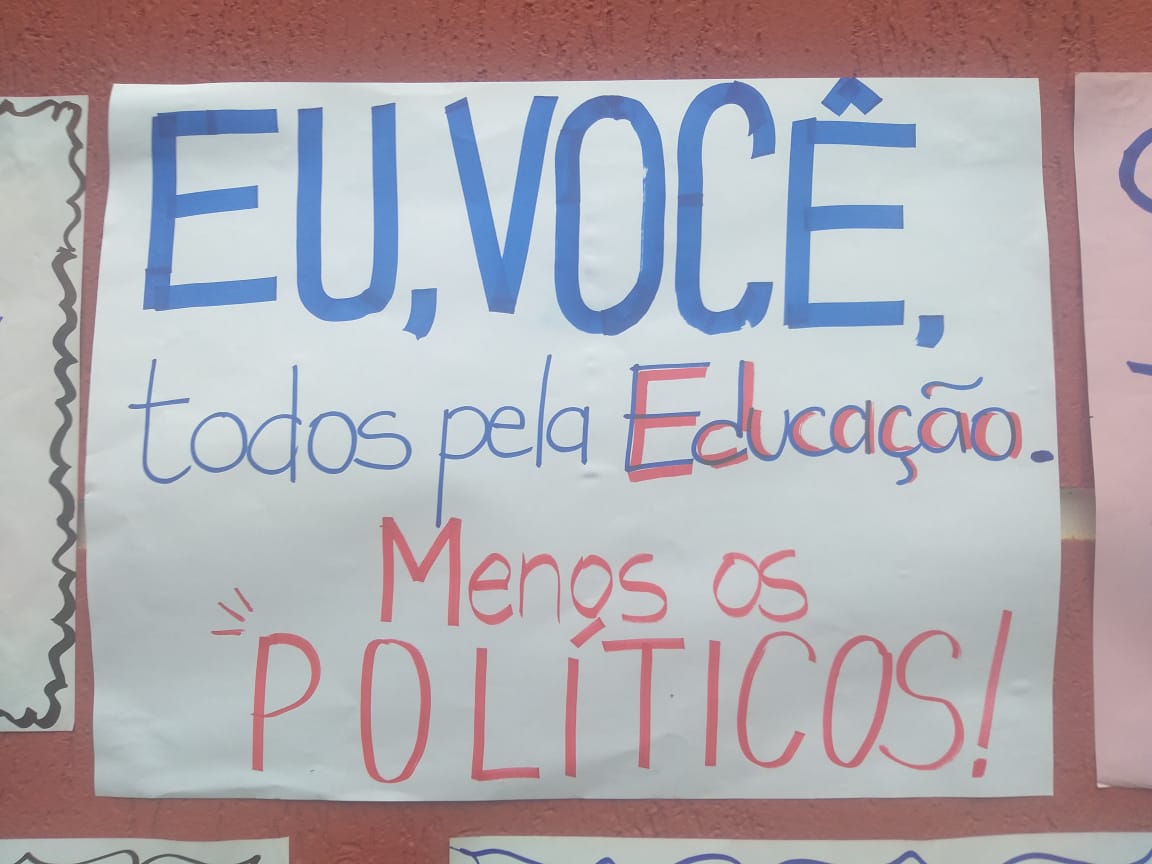 EU, VOCÊ,
todos pela Educação.
Menos os
POLÍTICOS!